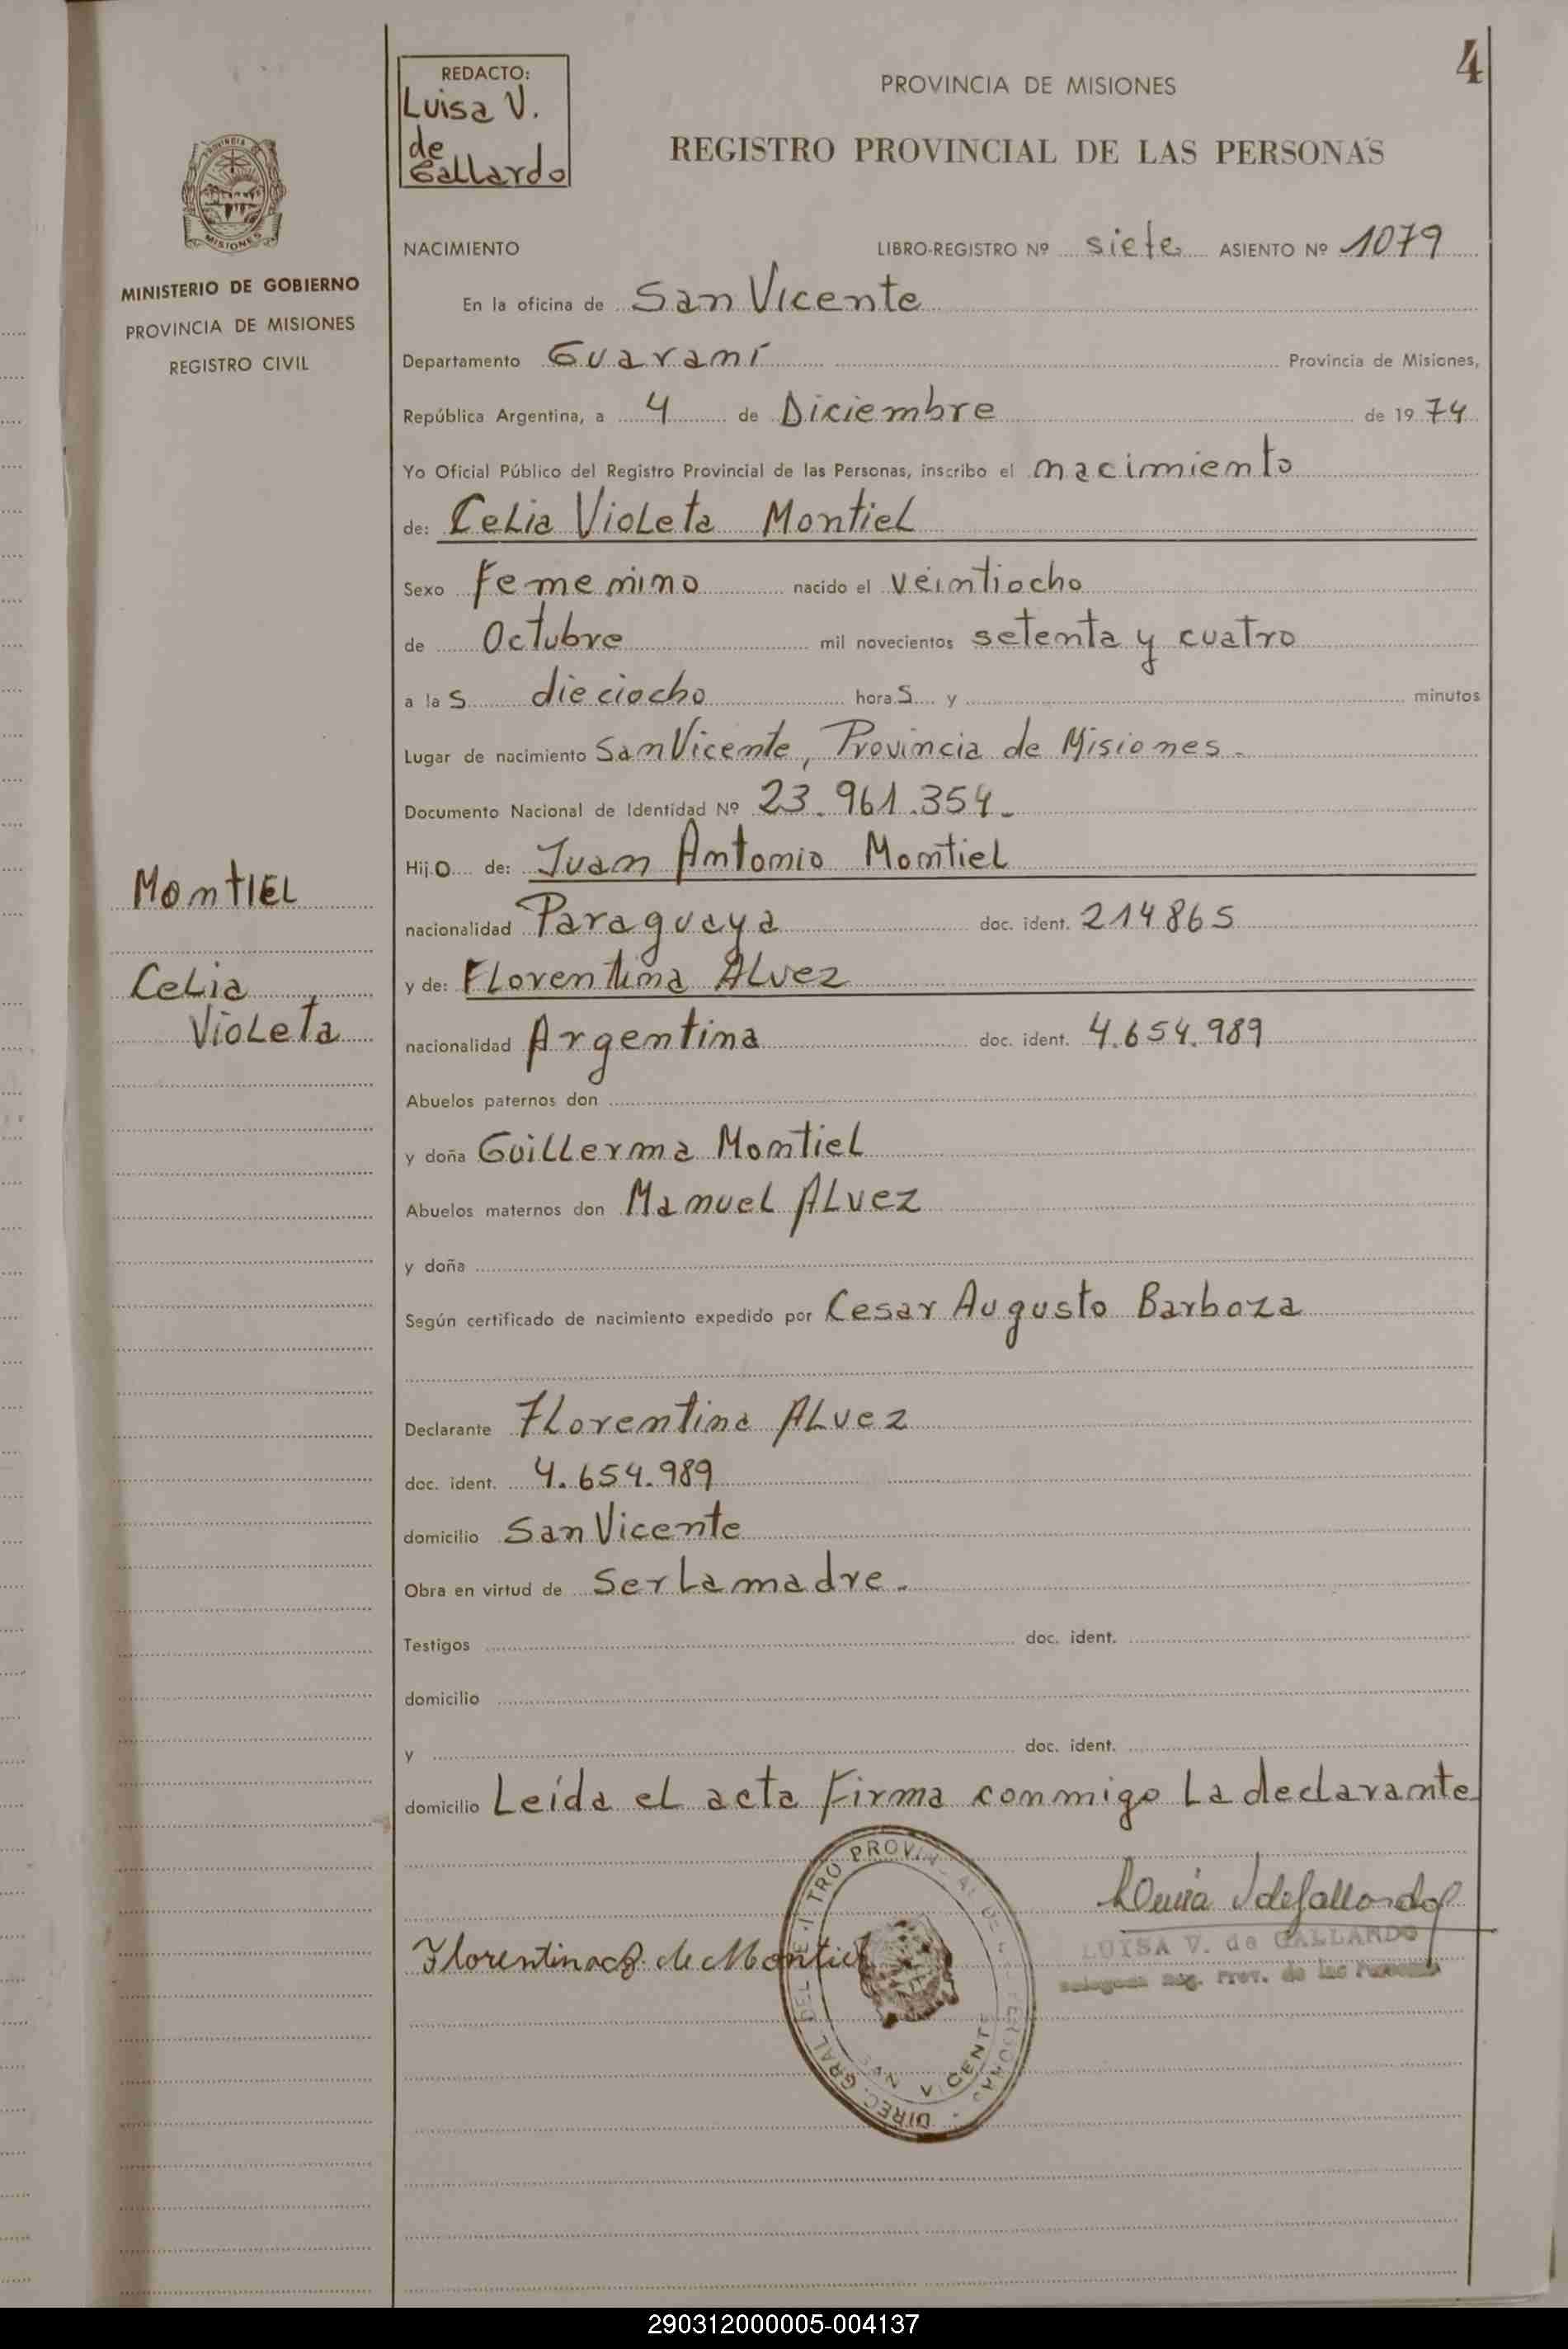 4
REDACTO:
Luisa V.
de
Gallardo
PROVINCIA DE MISIONES
REGISTRO PROVINCIAL DE LAS PERSONAS
PROVINCIA DE
MISIONES
MINISTERIO DE GOBIERNO
PROVINCIA DE MISIONES
REGISTRO CIVIL
NACIMIENTO LIBRO-REGISTRO Nº siete ASIENTO Nº 1079
En la oficina de San Vicente
Departamento Guaraní Provincia de Misiones,
República Argentina, a 4 de Diciembre de 1974
Yo Oficial Público del Registro Provincial de las Personas, inscribo el nacimiento
de: Celia Violeta Montiel
Sexo Femenino nacido el veintiocho
de Octubre mil novecientos setenta y cuatro
a las dieciocho horas y minutos
Lugar de nacimiento San Vicente, Provincia de Misiones.
Documento Nacional de Identidad Nº 23.961.354.
Hijo de: Juan Antonio Montiel
MontiEL
nacionalidad Paraguaya doc. ident. 214865
y de: Florentina Alvez
Celia
Violeta
nacionalidad Argentina doc. ident. 4.654.989
Abuelos paternos don
y doña Guillerma Montiel
Abuelos maternos don Manuel Alvez
y doña
Según certificado de nacimiento expedido por Cesar Augusto Barboza
Declarante Florentina Alvez
doc. ident. 4.654.989
domicilio San Vicente
Obra en virtud de Ser La madre.
Testigos doc. ident.
domicilio
y doc. ident.
domicilio Leída el acta Firma conmigo La declarante
Florentina de Montiel
LUISA V. de GALLARDO
Reg. Prov. de las
DIREC. GRAL DEL
VICENTE
290312000005-004137